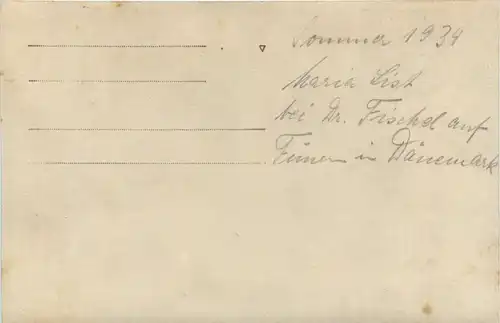 Sommer 1934
Maria List
bei Dr. Fischel auf
Fünen in Dänemark